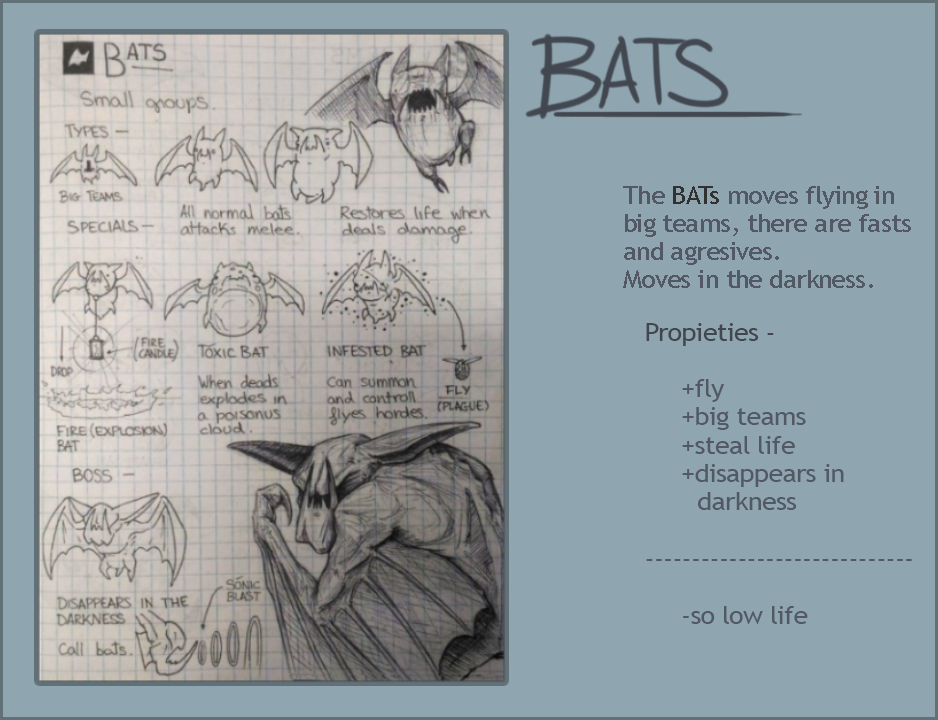 BATS
Small groups.
TYPES —
BIG TEAMS
All normal bats
attacks melee.
Restores life when
deals damage.
SPECIALS —
DROP
(FIRE
CANDLE)
FIRE (EXPLOSION)
BAT
TOXIC BAT
When deads
explodes in
a poisonus
cloud.
INFESTED BAT
Can summon
and controll
flyes hordes.
FLY
(PLAGUE)
BOSS —
DISAPPEARS IN THE
DARKNESS
Call bats.
SONIC
BLAST
BATS
The BATs moves flying in
big teams, there are fasts
and agresives.
Moves in the darkness.
Propieties -
+fly
+big teams
+steal life
+disappears in
darkness
-----------------------------
-so low life